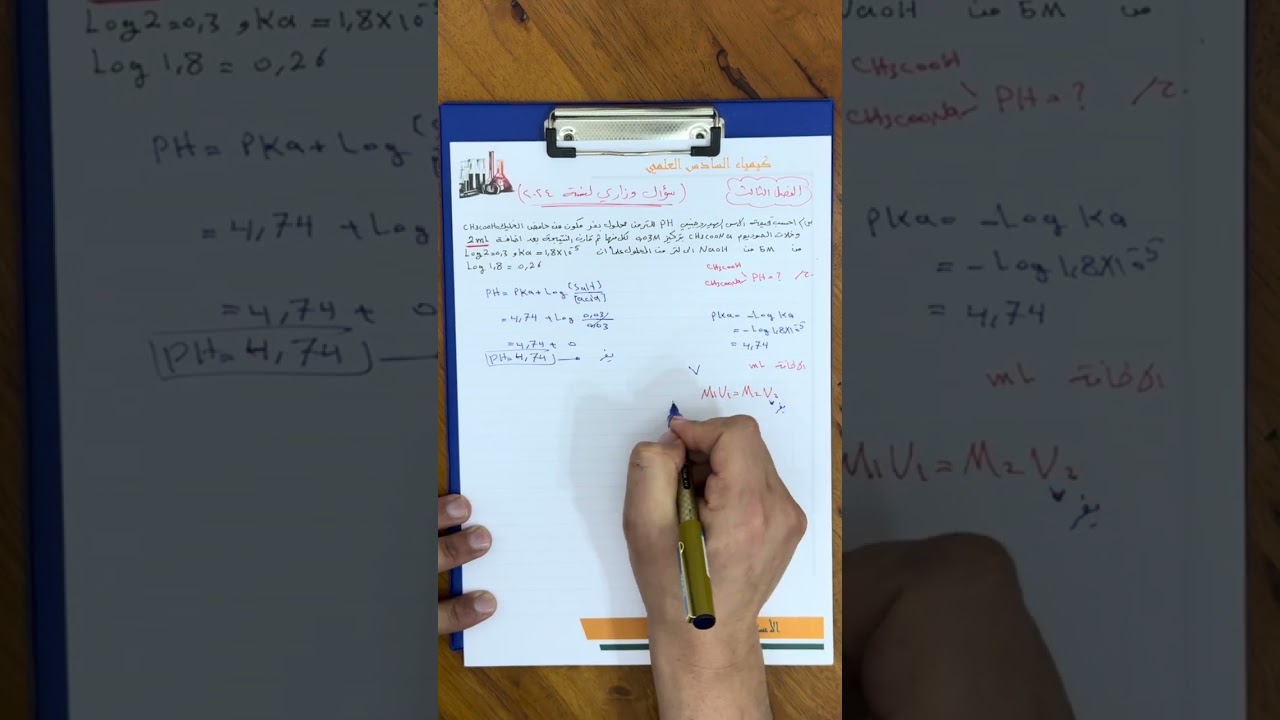 كيمياء السادس العلمي
الفصل الثالث
(سؤال وزاري لسنة ٢٠٢٤)
س/ احسب قيمة الاس الهيدروجيني PH للتر من محلول بفر مكون من حامض الخليك CH3COOH
وخلات الصوديوم CH3COONa بتركيز 0,03M لكل منها ثم قارن النتيجة بعد اضافة 2mL
من 5M من NaOH الى لتر من المحلول علماً ان Log2=0,3 , Ka=1,8X10-5
Log 1,8 = 0,26
ج/ CH3COOH
CH3COONa PH=?
PKa= -Log Ka
= -Log 1,8X10-5
= 4,74
PH= PKa + Log [Salt]/[acid]
= 4,74 + Log 0,03/0,03
= 4,74 + 0
PH=4,74 بفر
الاضافة mL
M1V1=M2V2
بفر
الأس